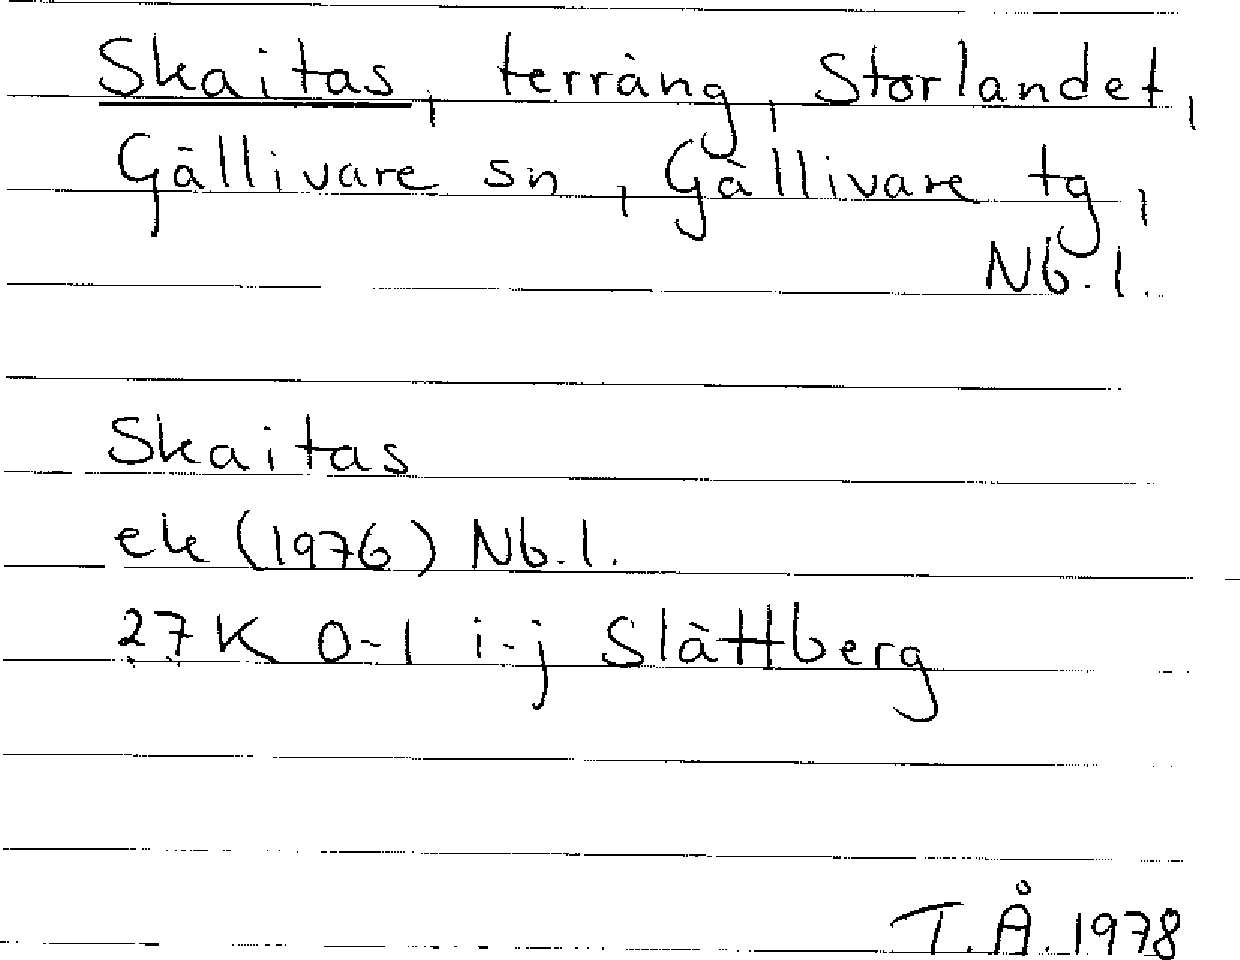 Skaitas, terräng, Storlandet,
Gällivare sn, Gällivare tg,
Nb. l.
Skaitas
ek (1976) Nb. l.
27 K 0-1 i-j Slättberg
T. Å. 1978